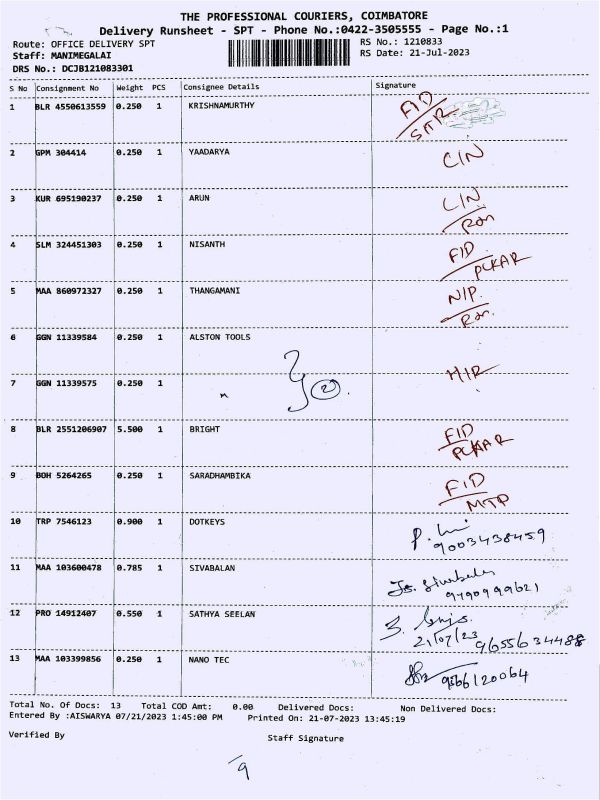 THE PROFESSIONAL COURIERS, COIMBATORE
Delivery Runsheet - SPT - Phone No.:0422-3505555 - Page No.:1
Route: OFFICE DELIVERY SPT RS No.: 1210833
Staff: MANIMEGALAI RS Date: 21-Jul-2023
DRS No.: DCJB121083301
S No Consignment No Weight PCS Consignee Details Signature
1 BLR 4550613559 0.250 1 KRISHNAMURTHY FID
STR
2 GPM 304414 0.250 1 YAADARYA CIN
3 KUR 695190237 0.250 1 ARUN CIN
4 SLM 324451303 0.250 1 NISANTH FID
PCKAR
5 MAA 860972327 0.250 1 THANGAMANI N/P.
6 GGN 11339584 0.250 1 ALSTON TOOLS
7 GGN 11339575 0.250 1 " 2 HIR
8 BLR 2551206907 5.500 1 BRIGHT FID
PCKAR
9 BOH 5264265 0.250 1 SARADHAMBIKA FID
MTP
10 TRP 7546123 0.900 1 DOTKEYS
9003438459
11 MAA 103600478 0.785 1 SIVABALAN Sivabalan
9790999621
12 PRO 14912407 0.550 1 SATHYA SEELAN
21/07/23 9655634488
13 MAA 103399856 0.250 1 NANO TEC 9566120064
Total No. Of Docs: 13 Total COD Amt: 0.00 Delivered Docs: Non Delivered Docs:
Entered By :AISWARYA 07/21/2023 1:45:00 PM Printed On: 21-07-2023 13:45:19
Verified By Staff Signature
9